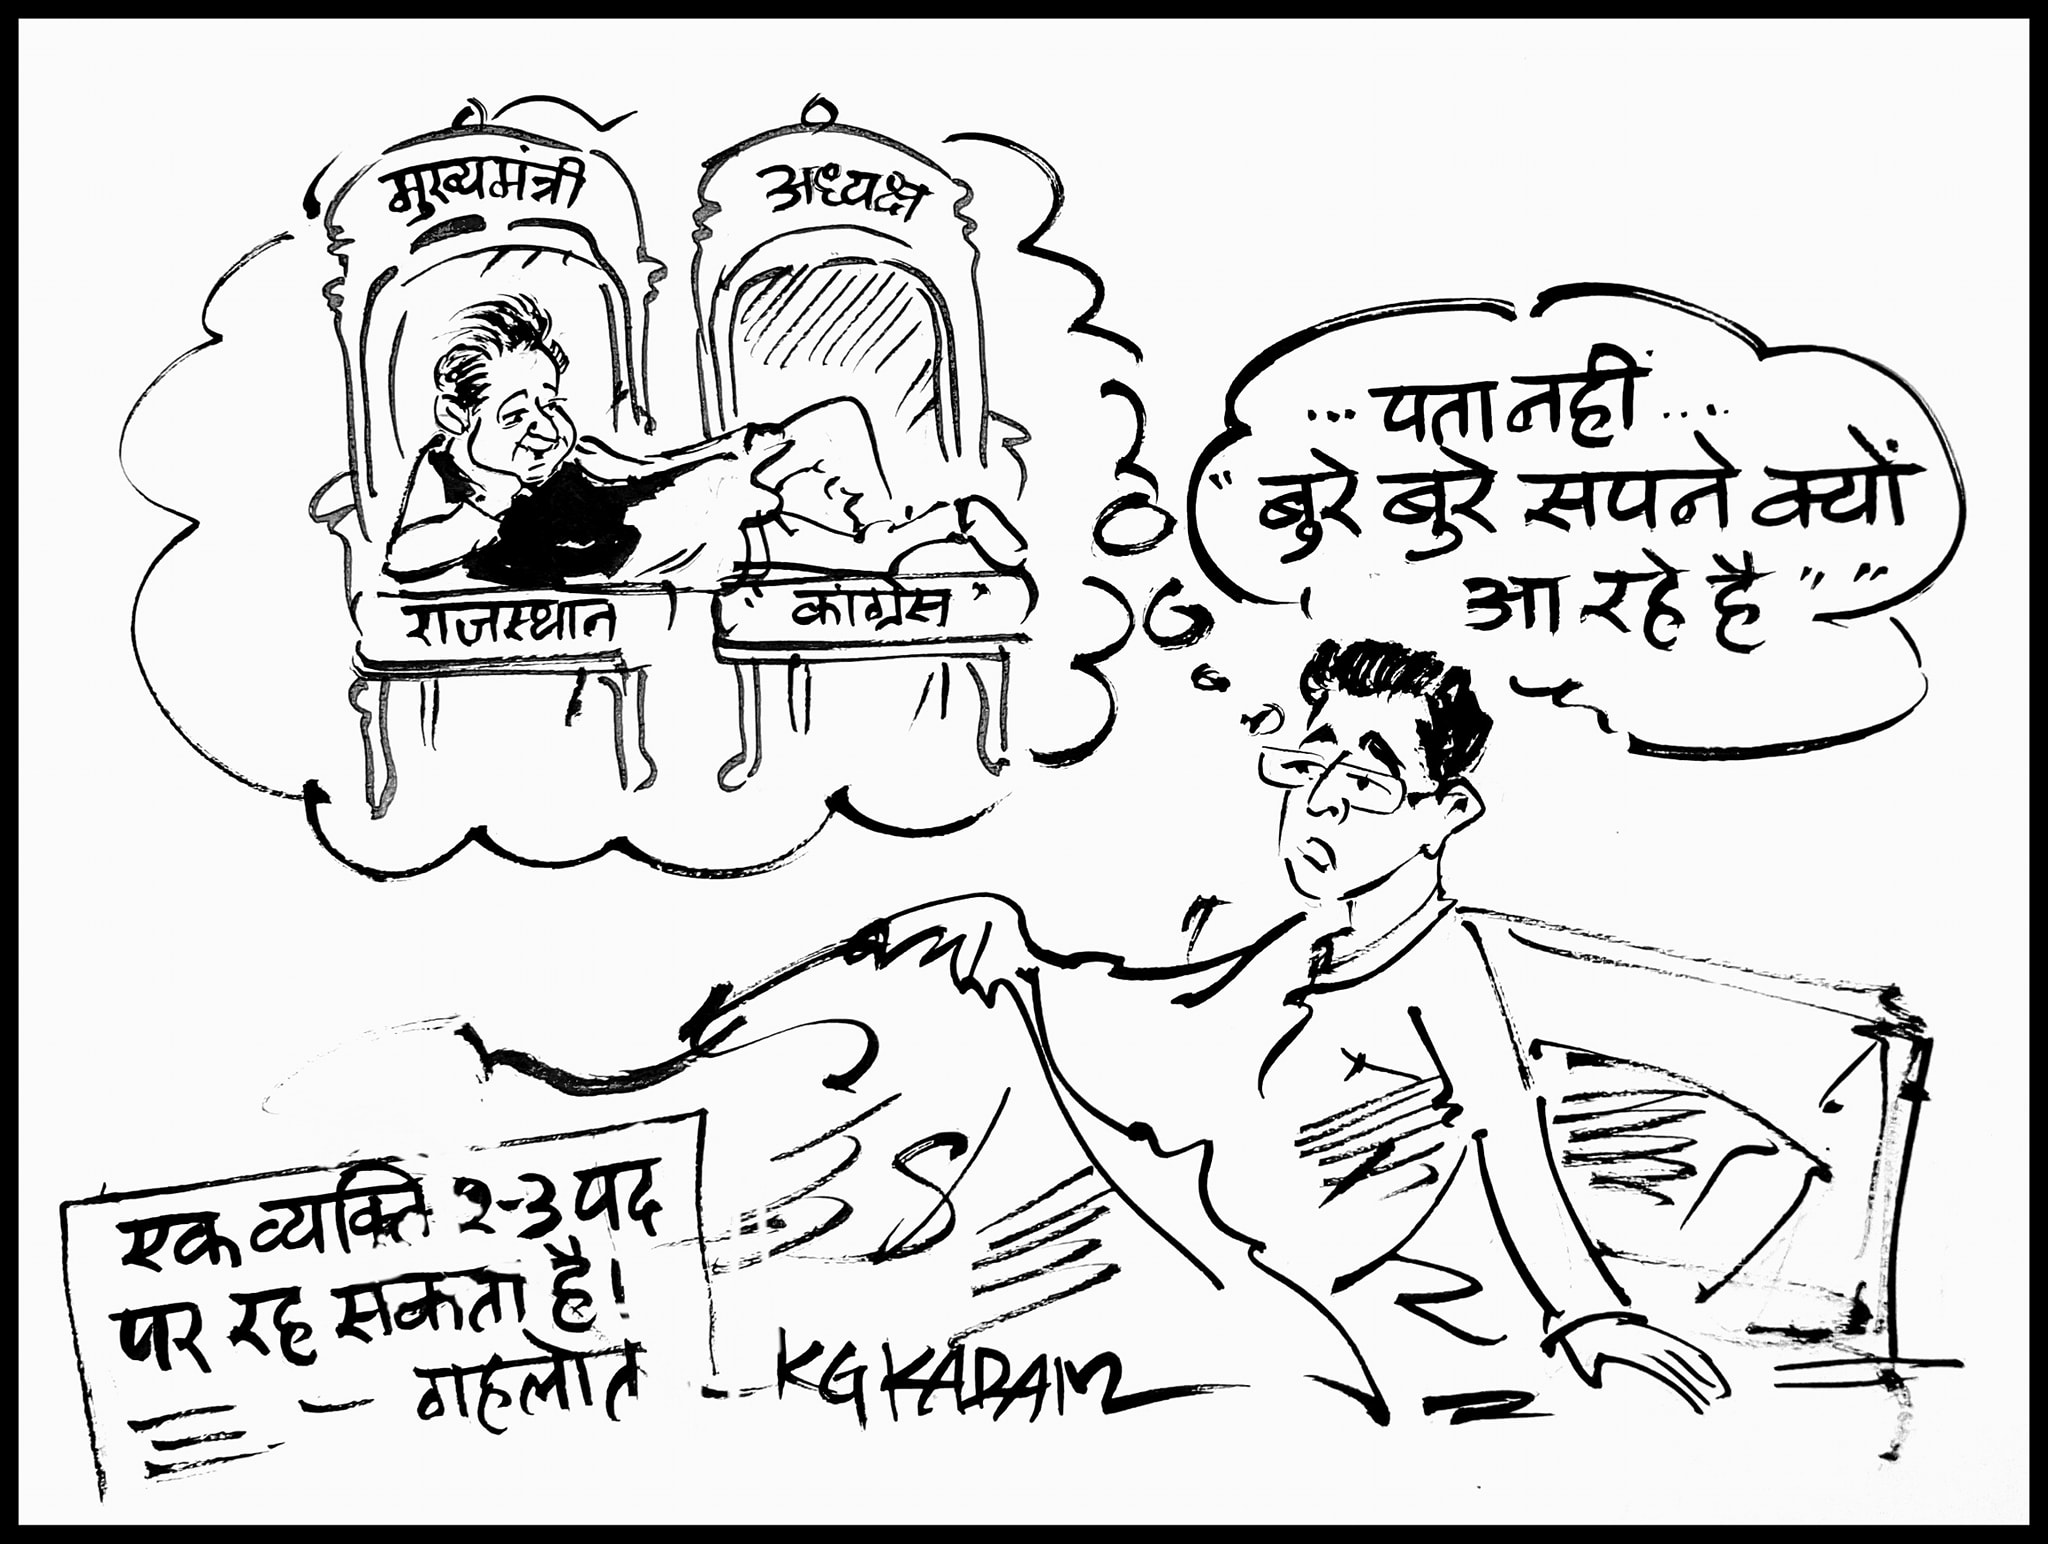 मुख्यमंत्री
अध्यक्ष
राजस्थान
" कांग्रेस "
... पता नही ...
" बुरे बुरे सपने क्यों
आ रहे है " "
एक व्यक्ति २-३ पद
पर रह सकता है!
- गहलोत
KGKADAM